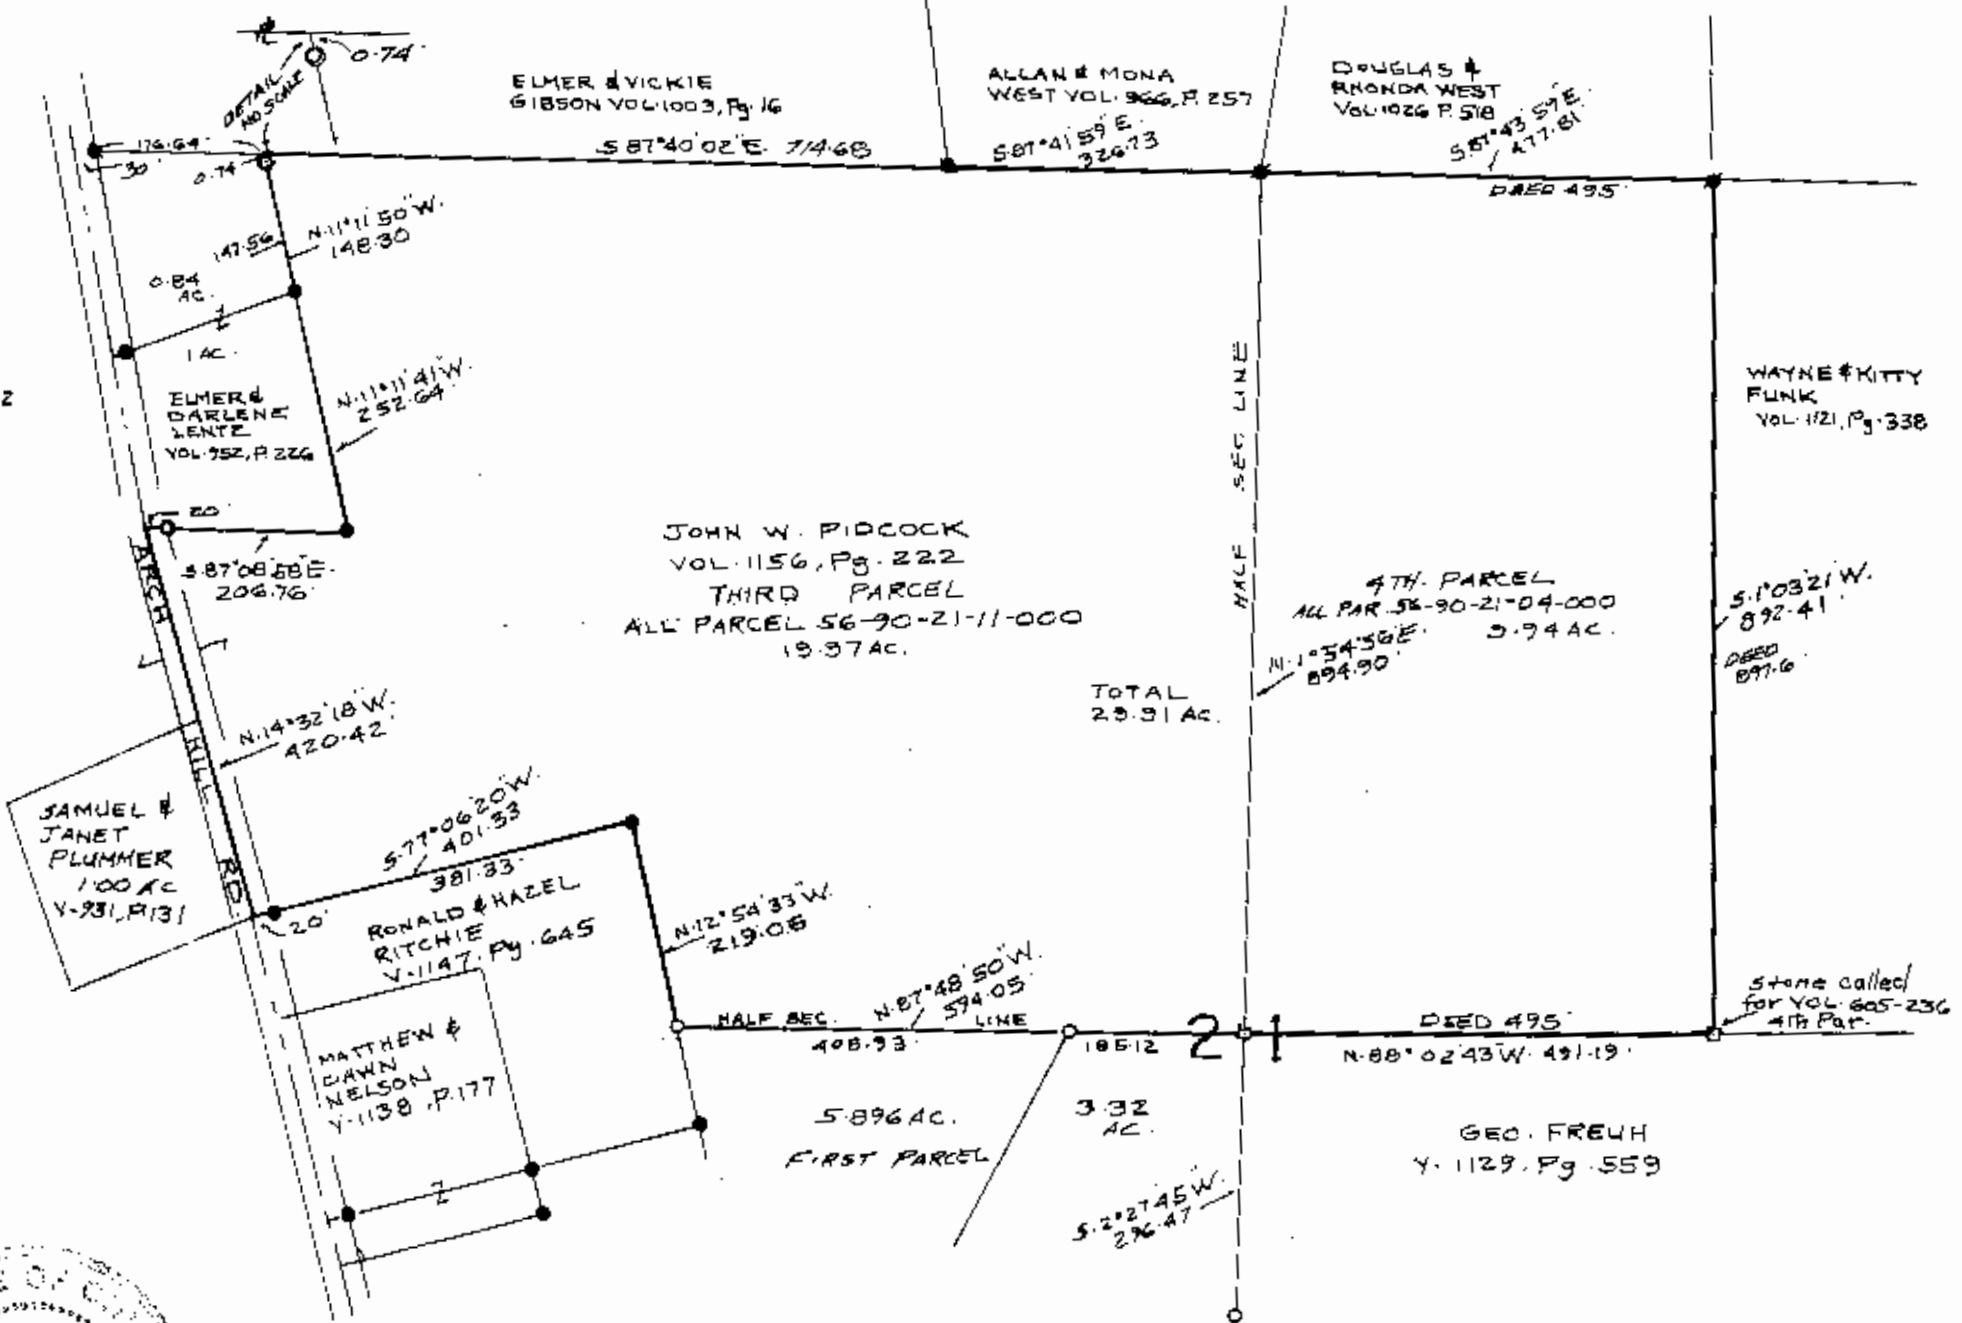 0.74'
DETAIL
NO SCALE
ELMER & VICKIE
GIBSON VOL.1003, Pg.16
ALLAN & MONA
WEST VOL. 966, P. 257
DOUGLAS &
RHONDA WEST
VOL.1026 P. 518
176.64'
30'
0.74'
S 87°40'02"E. 714.68
S.87°41'59"E.
326.73
S.87°43'57"E.
477.81'
DEED 495'
147.56
N.11°11'50"W.
148.30
0.84
AC.
1 AC.
2
ELMER &
DARLENE
LENTZ
VOL.952, P.226
N.11°11'41"W.
252.64'
20'
S.87°08'58"E.
206.76'
ARCH HILL RD
JOHN W. PIDCOCK
VOL.1156, Pg.222
THIRD PARCEL
ALL PARCEL 56-90-21-11-000
19.97 AC.
HALF SEC LINE
WAYNE & KITTY
FUNK
VOL.1121, Pg.338
4TH. PARCEL
ALL PAR.56-90-21-04-000
9.94 AC.
N.1°54'56"E.
894.90'
S.1°03'21"W.
892.41'
DEED
897.6
TOTAL
29.91 AC.
N.14°32'18"W.
420.42'
SAMUEL &
JANET
PLUMMER
1.00 AC
V-931, P.131
S.77°06'20"W.
401.33
381.33'
20'
RONALD & HAZEL
RITCHIE
V-1147, Pg.645
N.12°54'33"W.
219.08
N.87°48'50"W.
594.05'
HALF SEC. LINE
408.93'
185.12
2 1
DEED 495'
N.88°02'43"W. 491.19'
Stone called
for VOL.605-236
4Th Par.
MATTHEW &
DAWN
NELSON
V-1138, P.177
5.896 AC.
FIRST PARCEL
3.32
AC.
GEO. FREUH
V.1129, Pg.559
S.2°27'45"W.
296.47